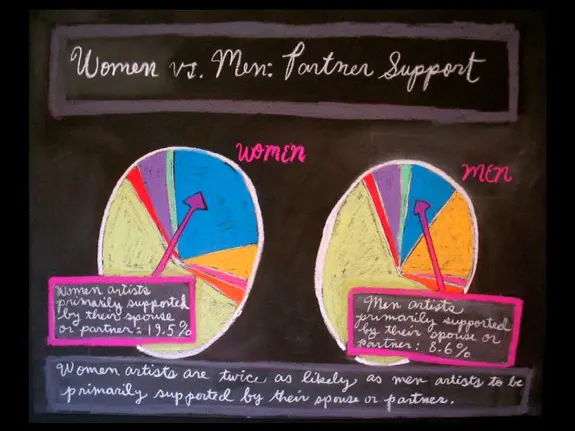 Women vs. Men: Partner Support
WOMEN
MEN
Women artists
primarily supported
by their spouse
or partner: 19.5%
Men artists
primarily supported
by their spouse or
partner: 8.6%
Women artists are twice as likely as men artists to be
primarily supported by their spouse or partner.